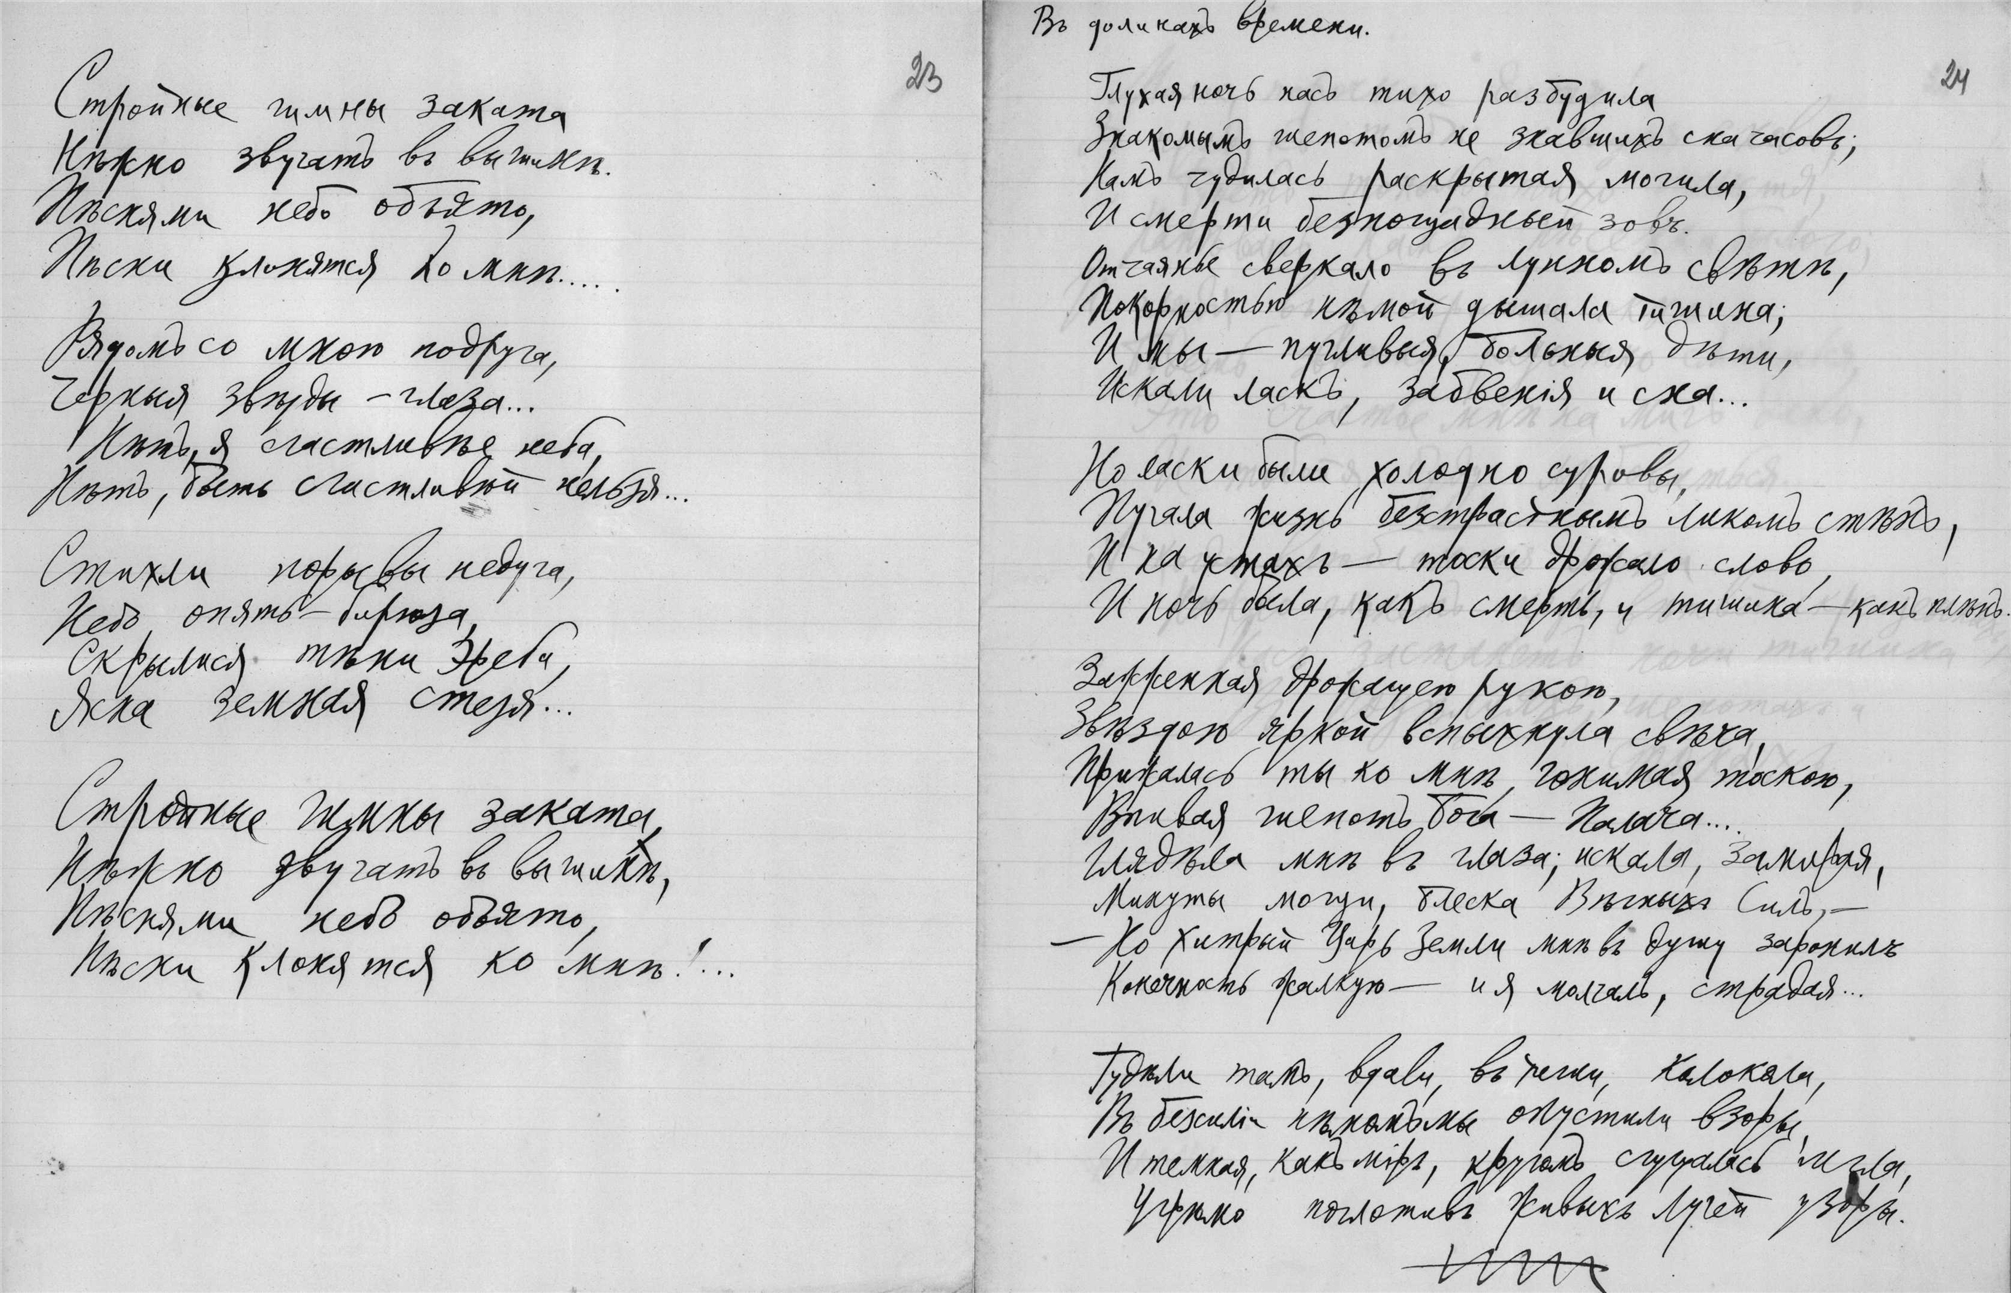 23
Стройные гимны заката
Нѣжно звучатъ въ вышинѣ.
Пѣснями небо объято,
Пѣсни клонятся ко мнѣ.....
Рядомъ со мною подруга,
Черныя звѣзды – глаза...
Нѣтъ, я счастливѣе неба,
Нѣтъ, быть счастливѣй нельзя...
Стихли порывы недуга,
Небо опять – бирюза,
Скрылися тѣни Эреба,
Ясна земная стезя...
Стройные гимны заката,
Нѣжно звучатъ въ вышинѣ,
Пѣснями небо объято,
Пѣсни клонятся ко мнѣ!...
Въ долинахъ времени.
24
Глухая ночь насъ тихо разбудила
Знакомымъ шепотомъ не знавшихъ сна часовъ;
Намъ чудилась раскрытая могила,
И смерти безпощадный зовъ.
Отчаянье сверкало въ лунномъ свѣтѣ,
Покорностью нѣмой дышала тишина;
И мы — пугливыя, больныя дѣти,
Искали ласкъ, забвенія и сна...
Но ласки были холодно суровы,
Пугала жизнь безстрастнымъ ликомъ стѣнъ,
И на устахъ — тоски дрожало слово,
И ночь была, какъ смерть, и тишина — какъ плѣнъ.
Зажженная дрожащею рукою,
Звѣздою яркой вспыхнула свѣча,
Прижалась ты ко мнѣ, гонимая тоскою,
Впивая шепотъ Бога — Палача....
Глядѣла мнѣ въ глаза; искала, замирая,
Минуты мощи, блеска Вѣчныхъ Силъ, —
— Но хитрый Царь Земли мнѣ въ душу заронилъ
Конечность жалкую — и я молчалъ, страдая...
Гудѣли тамъ, вдали, въ тиши, колокола,
Въ безсиліи нѣмомъ мы опустили взоры,
И темная, какъ міръ, кругомъ сгущалась мгла,
Угрюмо поглотивъ живыхъ лучей узоры.